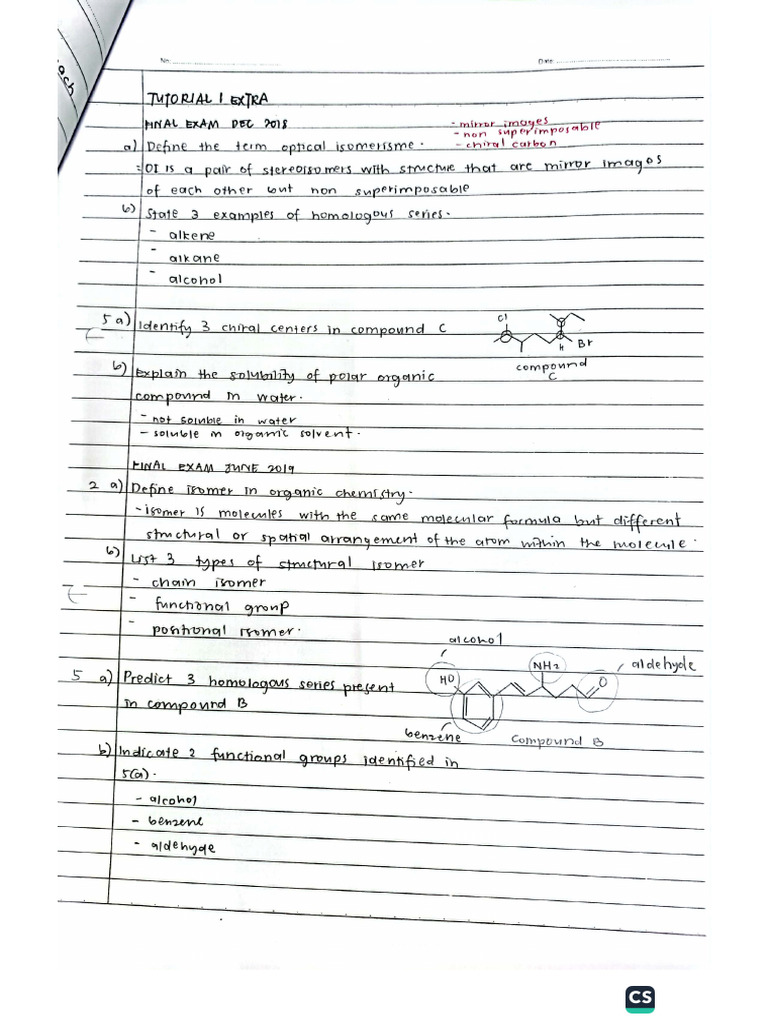 ach
No:
Date:
TUTORIAL 1 EXTRA
FINAL EXAM DEC 2018
- mirror images
- non superimposable
- chiral carbon
a) Define the term optical isomerisme.
= OI is a pair of stereoisomers with structure that are mirror images
of each other but non superimposable
b) State 3 examples of homologous series.
- alkene
- alkane
- alcohol
5 a) Identify 3 chiral centers in compound C
Cl
H
Br
compound
C
b) Explain the solubility of polar organic
compound in water.
- not soluble in water
- soluble in organic solvent.
FINAL EXAM JUNE 2019
2 a) Define isomer in organic chemistry.
- isomer is molecules with the same molecular formula but different
structural or spatial arrangement of the atom within the molecule.
b) List 3 types of structural isomer
- chain isomer
- functional group
- positional isomer.
alcohol
HO
NH2
O
aldehyde
benzene
compound B
5 a) Predict 3 homologous series present
in compound B
b) Indicate 2 functional groups identified in
5(a).
- alcohol
- benzene
- aldehyde
CS